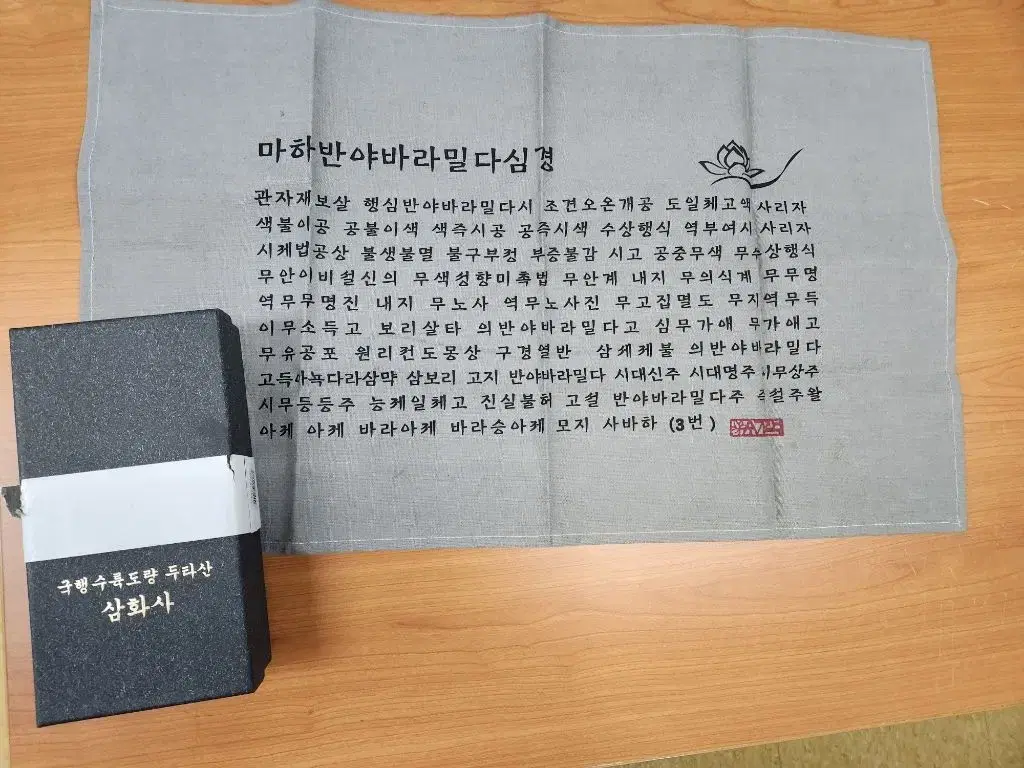 마하반야바라밀다심경
관자재보살 행심반야바라밀다시 조견오온개공 도일체고액 사리자
색불이공 공불이색 색즉시공 공즉시색 수상행식 역부여시 사리자
시제법공상 불생불멸 불구부정 부증불감 시고 공중무색 무수상행식
무안이비설신의 무색성향미촉법 무안계 내지 무의식계 무무명
역무무명진 내지 무노사 역무노사진 무고집멸도 무지역무득
이무소득고 보리살타 의반야바라밀다고 심무가애 무가애고
무유공포 원리전도몽상 구경열반 삼세제불 의반야바라밀다
고득아뇩다라삼먁 삼보리 고지 반야바라밀다 시대신주 시대명주 시무상주
시무등등주 능제일체고 진실불허 고설 반야바라밀다주 즉설주왈
아제 아제 바라아제 바라승아제 모지 사바하 (3번)
국행수륙도량 두타산
삼화사